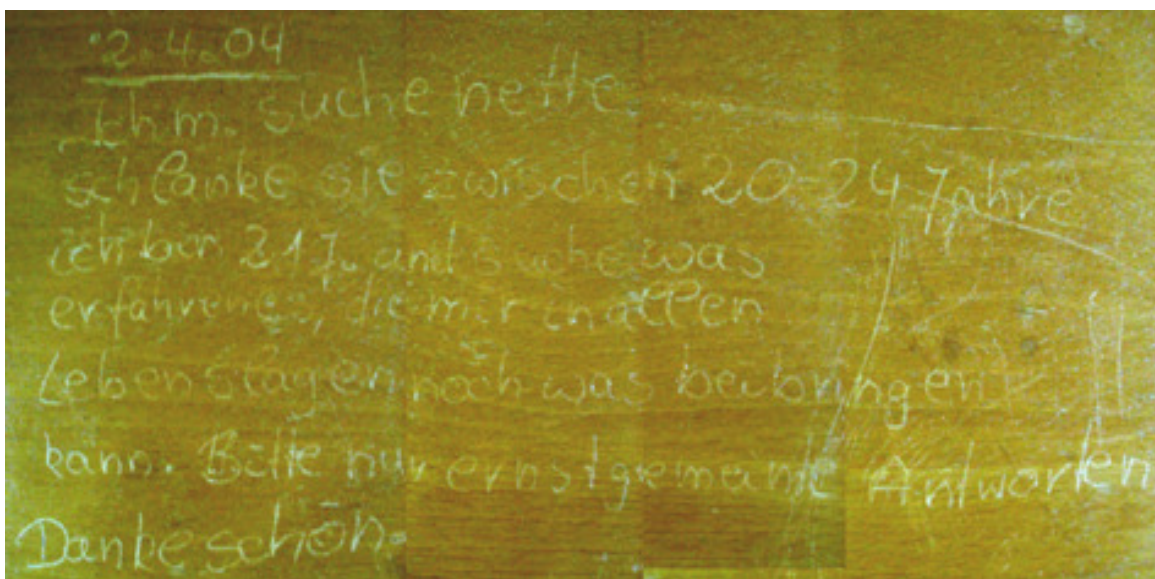 2.4.04
Ich m. suche nette
schlanke sie zwischen 20-24 Jahre
ich bin 21J. and suche was
erfahrenes, die mir in allen
Lebenslagen noch was beibringen
kann. Bitte nur ernstgemeinte Antworten
Dankeschön.